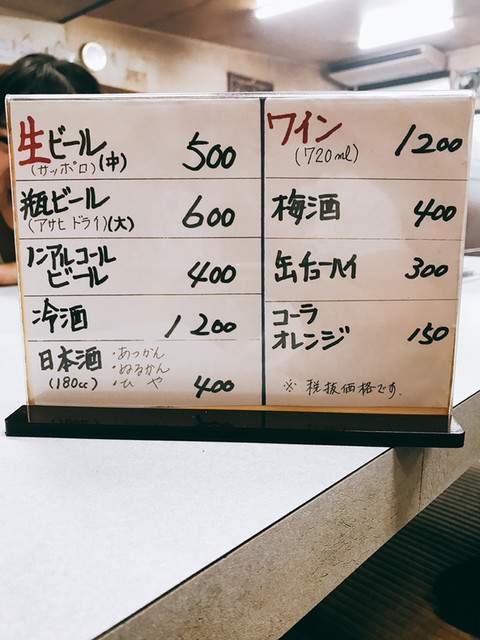 生ビール
(サッポロ)(中) 500
瓶ビール
(アサヒ ドライ)(大) 600
ノンアルコール
ビール 400
冷酒 1200
日本酒 ・あつかん
・ぬるかん
(180cc) ・ひや 400
ワイン
(720ml) 1200
梅酒 400
缶チューハイ 300
コーラ
オレンジ 150
※ 税抜価格です。